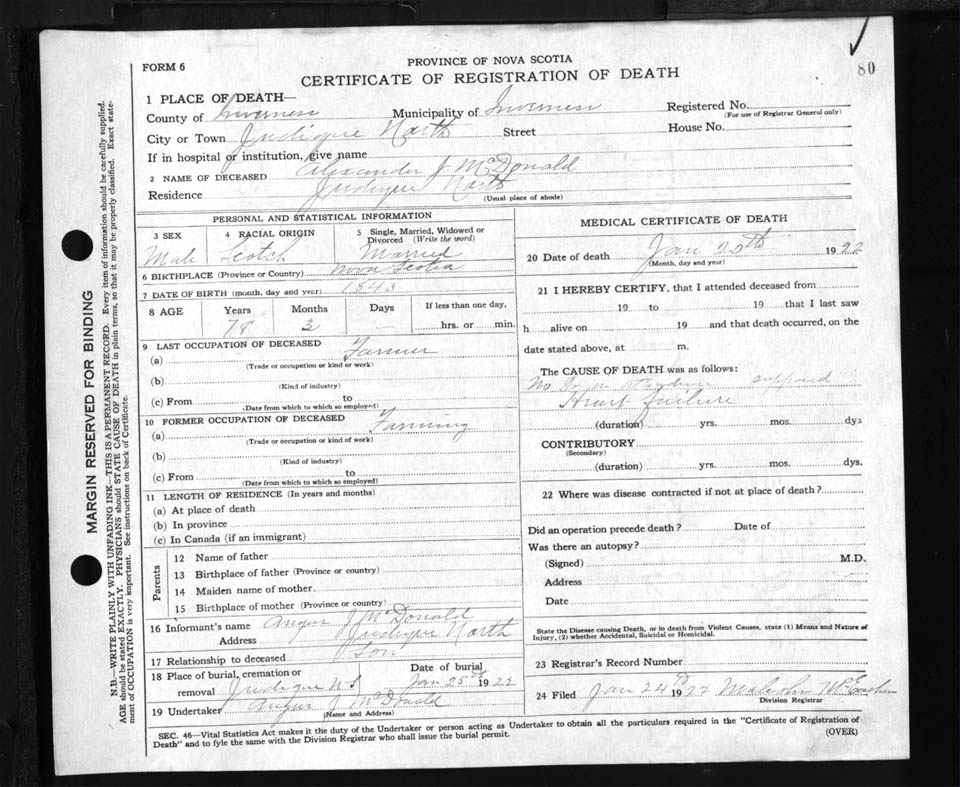 80
FORM 6
PROVINCE OF NOVA SCOTIA
CERTIFICATE OF REGISTRATION OF DEATH
1 PLACE OF DEATH—
County of Inverness Municipality of Inverness Registered No.
(For use of Registrar General only)
City or Town Judique North Street House No.
If in hospital or institution, give name
2 NAME OF DECEASED Alexander J. McDonald
Residence Judique North
(Usual place of abode)
PERSONAL AND STATISTICAL INFORMATION
3 SEX 4 RACIAL ORIGIN 5 Single, Married, Widowed or Divorced (Write the word)
Male Scotch Married
6 BIRTHPLACE (Province or Country) Nova Scotia
7 DATE OF BIRTH (month, day and year) 1843
8 AGE Years Months Days If less than one day,
78 3 hrs. or min.
9 LAST OCCUPATION OF DECEASED
(a) Farmer
(Trade or occupation or kind or work)
(b)
(Kind of industry)
(c) From to
(Date from which to which so employed)
10 FORMER OCCUPATION OF DECEASED
(a) Farming
(Trade or occupation or kind of work)
(b)
(Kind of industry)
(c) From to
(Date from which to which so employed)
11 LENGTH OF RESIDENCE (In years and months)
(a) At place of death
(b) In province
(c) In Canada (if an immigrant)
Parents
12 Name of father
13 Birthplace of father (Province or country)
14 Maiden name of mother
15 Birthplace of mother (Province or country)
16 Informant's name Angus J McDonald
Address Judique North
17 Relationship to deceased Son
18 Place of burial, cremation or removal Judique N S Date of burial Jan 25th 1922
19 Undertaker Angus J McDonald
(Name and Address)
MEDICAL CERTIFICATE OF DEATH
20 Date of death Jan 20th 1922
(Month, day and year)
21 I HEREBY CERTIFY, that I attended deceased from
19 to 19 that I last saw
h alive on 19 and that death occurred, on the
date stated above, at m.
The CAUSE OF DEATH was as follows:
No Dr in supposed
Heart failure
(duration) yrs. mos. dys
CONTRIBUTORY
(Secondary)
(duration) yrs. mos. dys.
22 Where was disease contracted if not at place of death?
Did an operation precede death? Date of
Was there an autopsy?
(Signed) M.D.
Address
Date
State the Disease causing Death, or in death from Violent Causes, state (1) Means and Nature of
Injury, (2) whether Accidental, Suicidal or Homicidal.
23 Registrar's Record Number
24 Filed Jan 24th 1922 Malcolm
Division Registrar
SEC. 46—Vital Statistics Act makes it the duty of the Undertaker or person acting as Undertaker to obtain all the particulars required in the "Certificate of Registration of
Death" and to fyle the same with the Division Registrar who shall issue the burial permit.
(OVER)
MARGIN RESERVED FOR BINDING
N.B.—WRITE PLAINLY WITH UNFADING INK—THIS IS A PERMANENT RECORD. Every item of information should be carefully supplied.
AGE should be stated EXACTLY. PHYSICIANS should STATE CAUSE OF DEATH in plain terms, so that it may be properly classified. Exact state-
ment of OCCUPATION is very important. See instructions on back of Certificate.